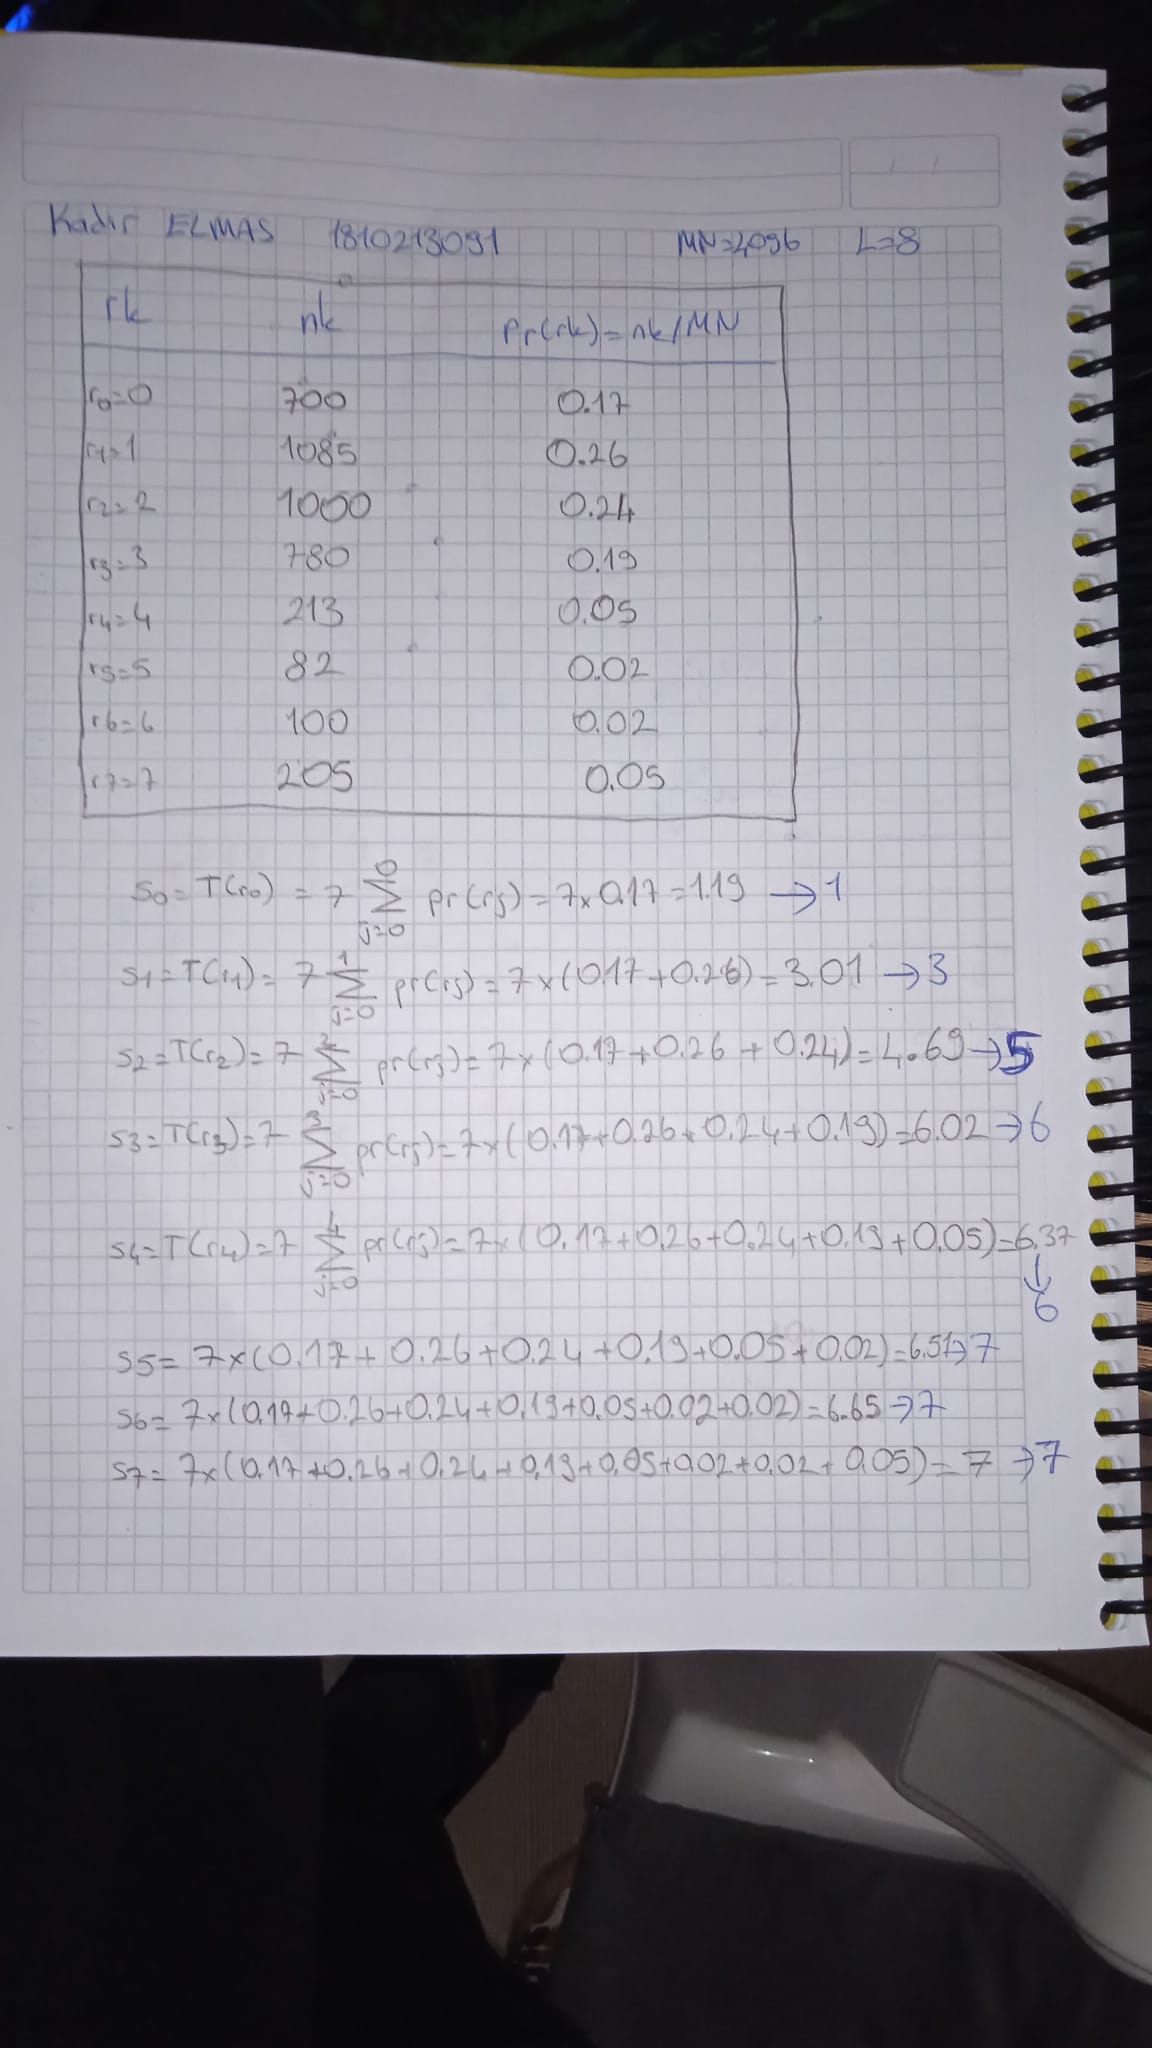 Kadir ELMAS 1810213091 MN=4096 L=8
rk nk Pr(rk)=nk/MN
r0=0 700 0.17
r1=1 1085 0.26
r2=2 1000 0.24
r3=3 780 0.19
r4=4 213 0.05
r5=5 82 0.02
r6=6 100 0.02
r7=7 205 0.05
S0=T(r0) = 7 ∑ j=0 0 pr(rj)=7x0.17=1.19 →1
S1=T(r1)= 7 ∑ j=0 1 pr(rj)=7x(0.17+0.26)=3.01 →3
S2=T(r2)=7 ∑ j=0 2 pr(rj)=7x(0.17+0.26+0.24)=4.69→5
S3=T(r3)=7 ∑ j=0 3 pr(rj)=7x(0.17+0.26+0.24+0.19)=6.02→6
S4=T(r4)=7 ∑ j=0 4 pr(rj)=7x(0.17+0.26+0.24+0.19+0.05)=6.37
↓
6
S5=7x(0.17+0.26+0.24+0.19+0.05+0.02)=6.51→7
S6=7x(0.17+0.26+0.24+0.19+0.05+0.02+0.02)=6.65→7
S7=7x(0.17+0.26+0.24+0.19+0.05+0.02+0.02+0.05)=7→7